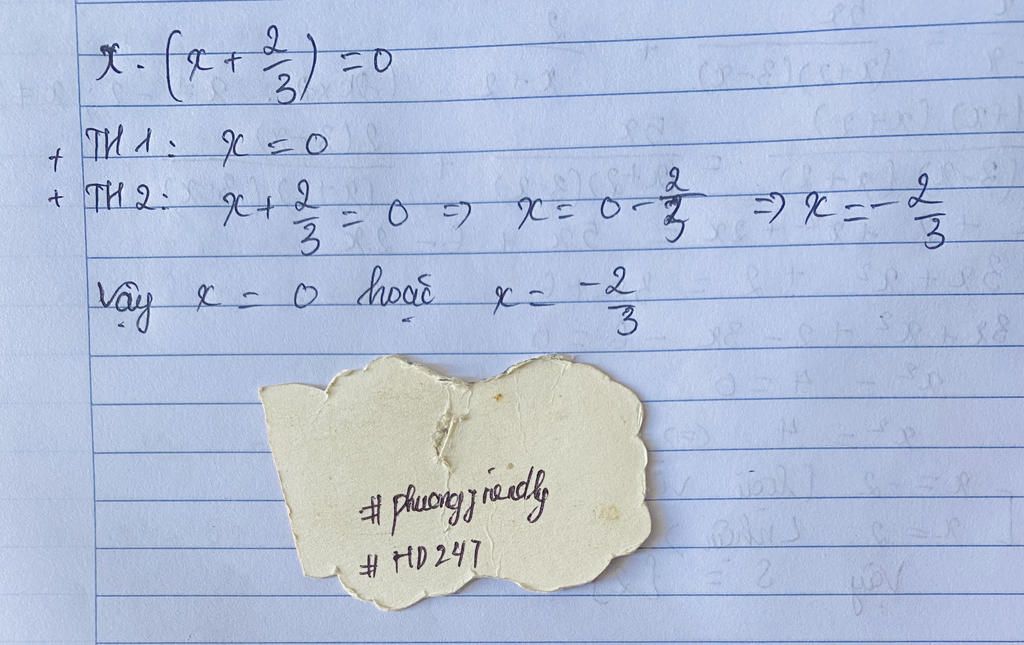 x . (x + 2/3) = 0
+ TH1: x = 0
+ TH2: x + 2/3 = 0 => x = 0 - 2/3 => x = - 2/3
Vậy x = 0 hoặc x = -2/3
#phuongfriendly
#HD247